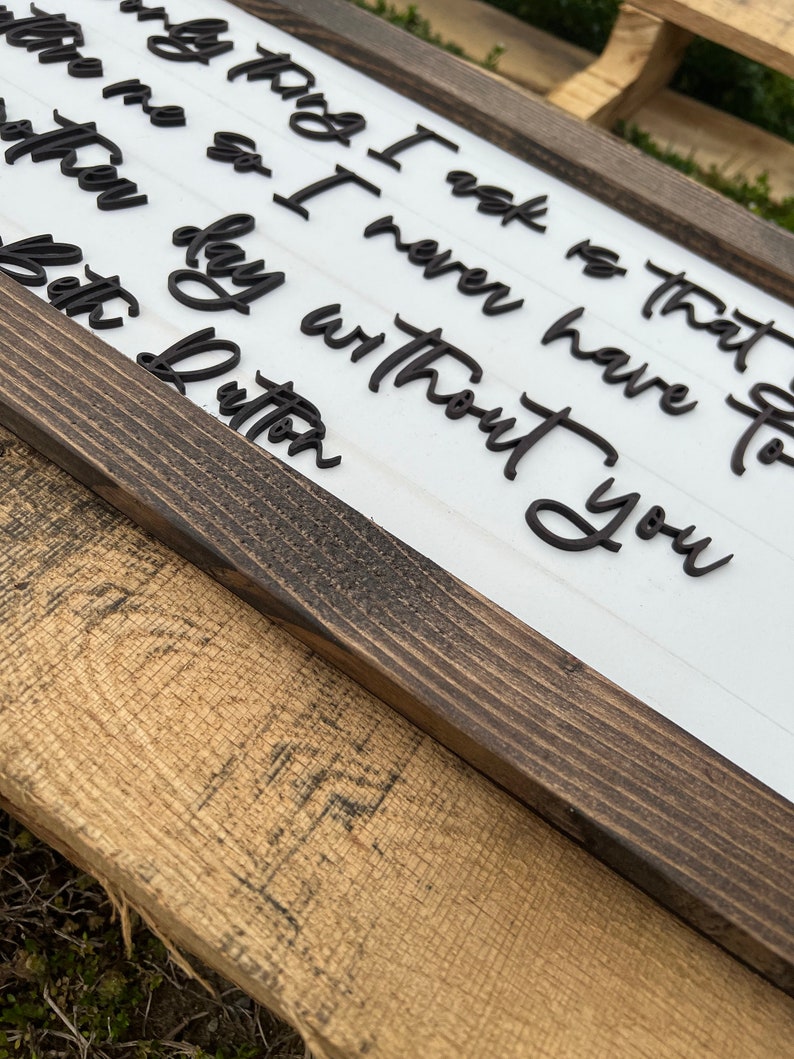 only thing I ask is that
me so I never have to
day without you
Beth Dutton